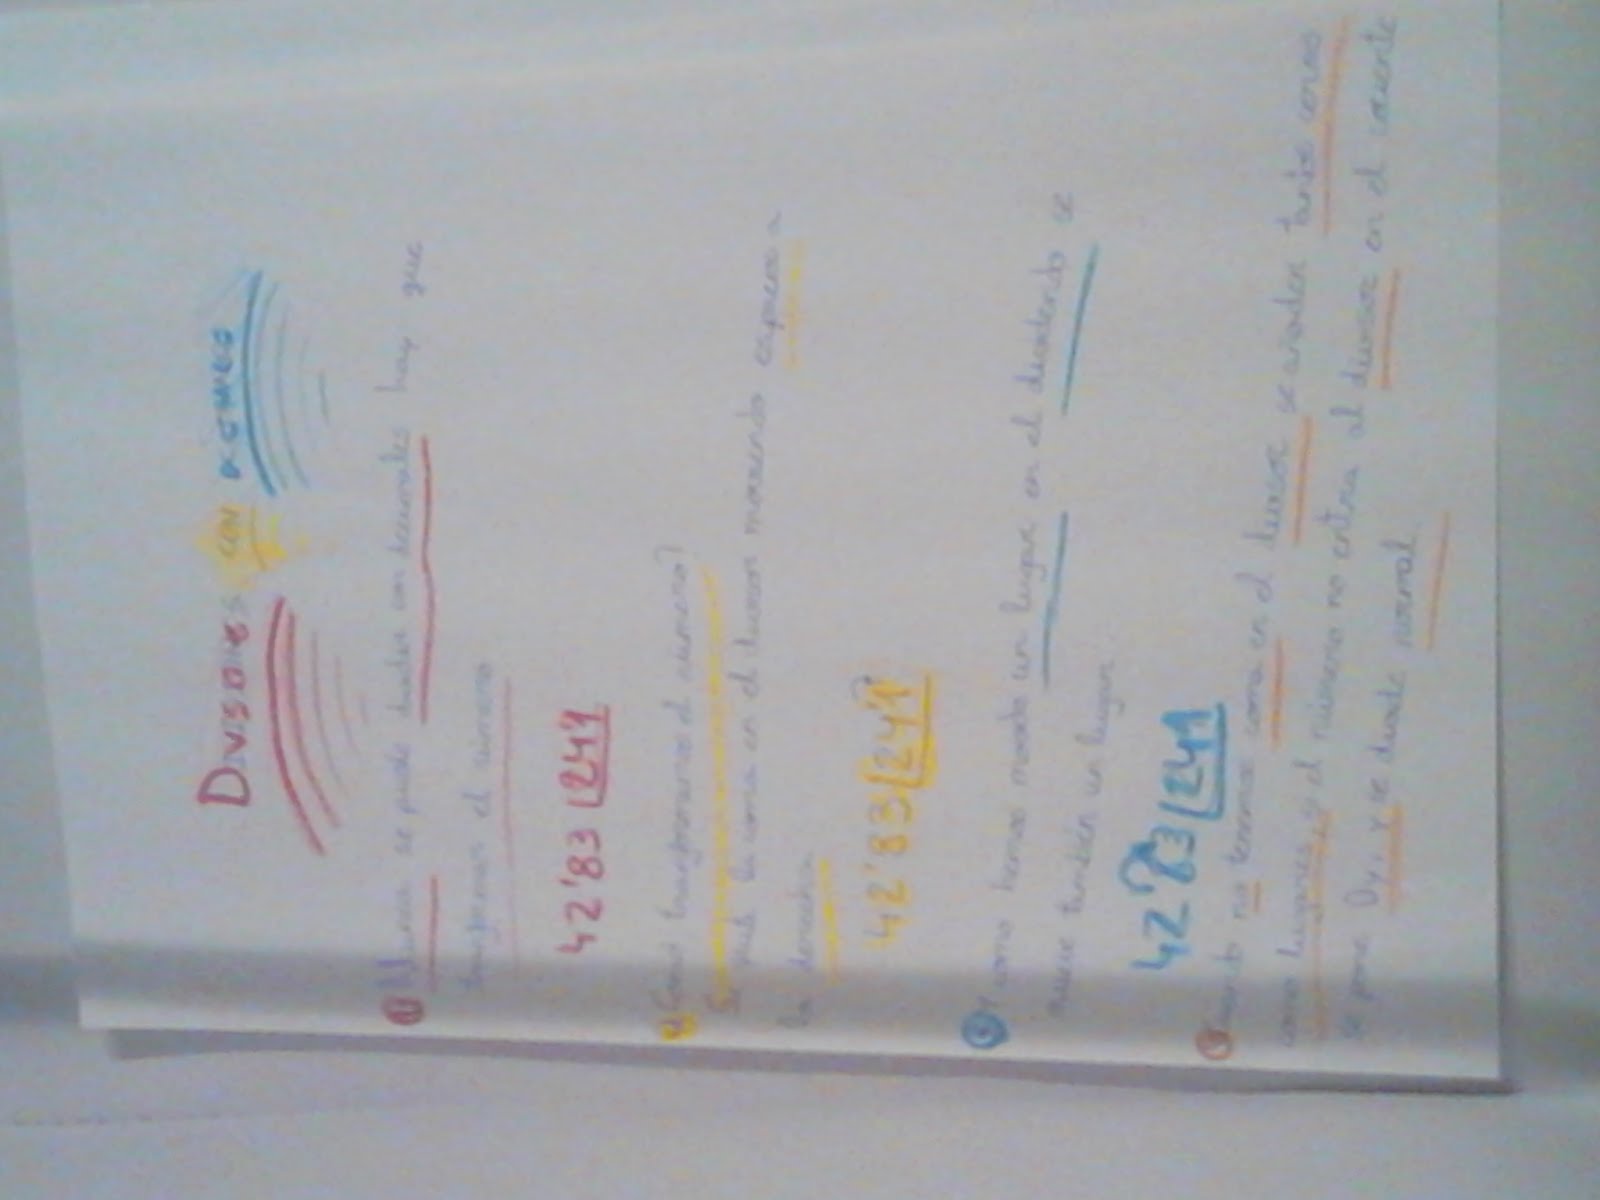 DIVISIONES CON DECIMALES
① Nunca se puede dividir con decimales hay que
transformar el número
42'83 24'1
② ¿Cómo transformamos el número?
la coma en el divisor moviendo espacios a
la derecha.
42'83 24'1
Y como hemos movido un lugar en el dividendo se
mueve también un lugar.
42'83 241
Cuando no tenemos coma en el divisor se añaden tantos ceros
como lugares, y si el número no entra al divisor en el cociente
se pone 0, y se divide normal.